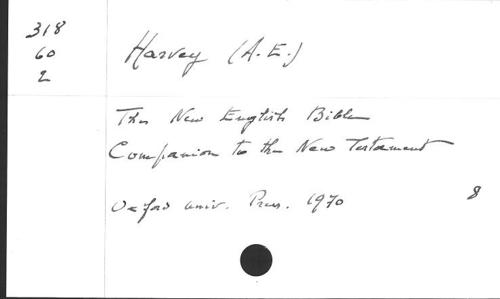 318
60
2
Harvey (A.E.)
The New English Bible
Companion to the New Testament
Oxford Univ. Press. 1970
8